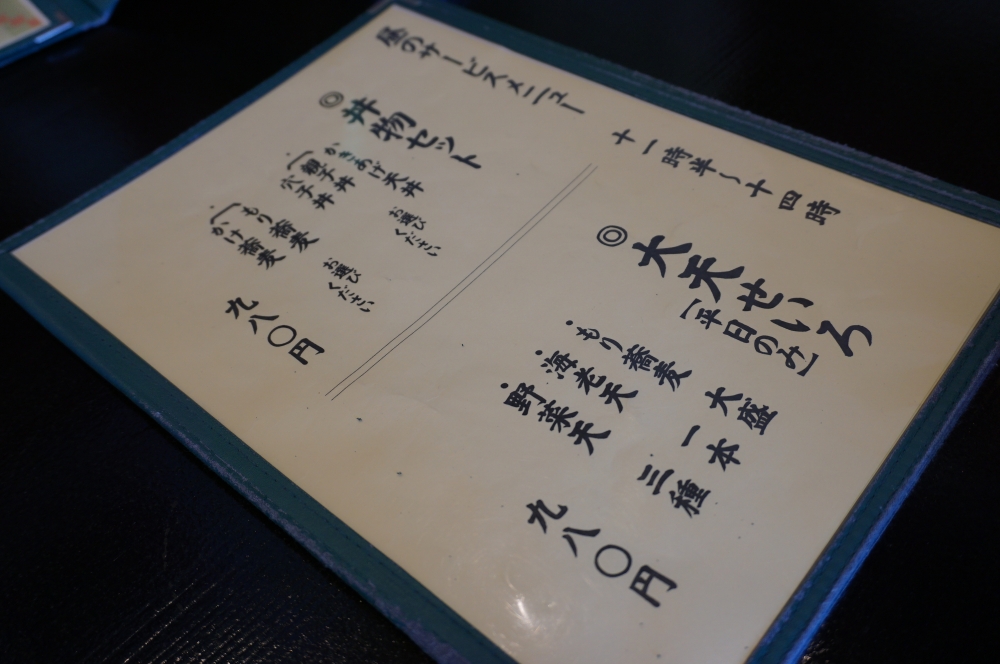 昼のサービスメニュー
十一時半〜十四時
◎大天せいろ
(平日のみ)
・もり蕎麦 大盛
・海老天 一本
・野菜天 三種
九八〇円
◎丼物セット
かきあげ天丼
親子丼
穴子丼
お選びください
もり蕎麦
かけ蕎麦
お選びください
九八〇円